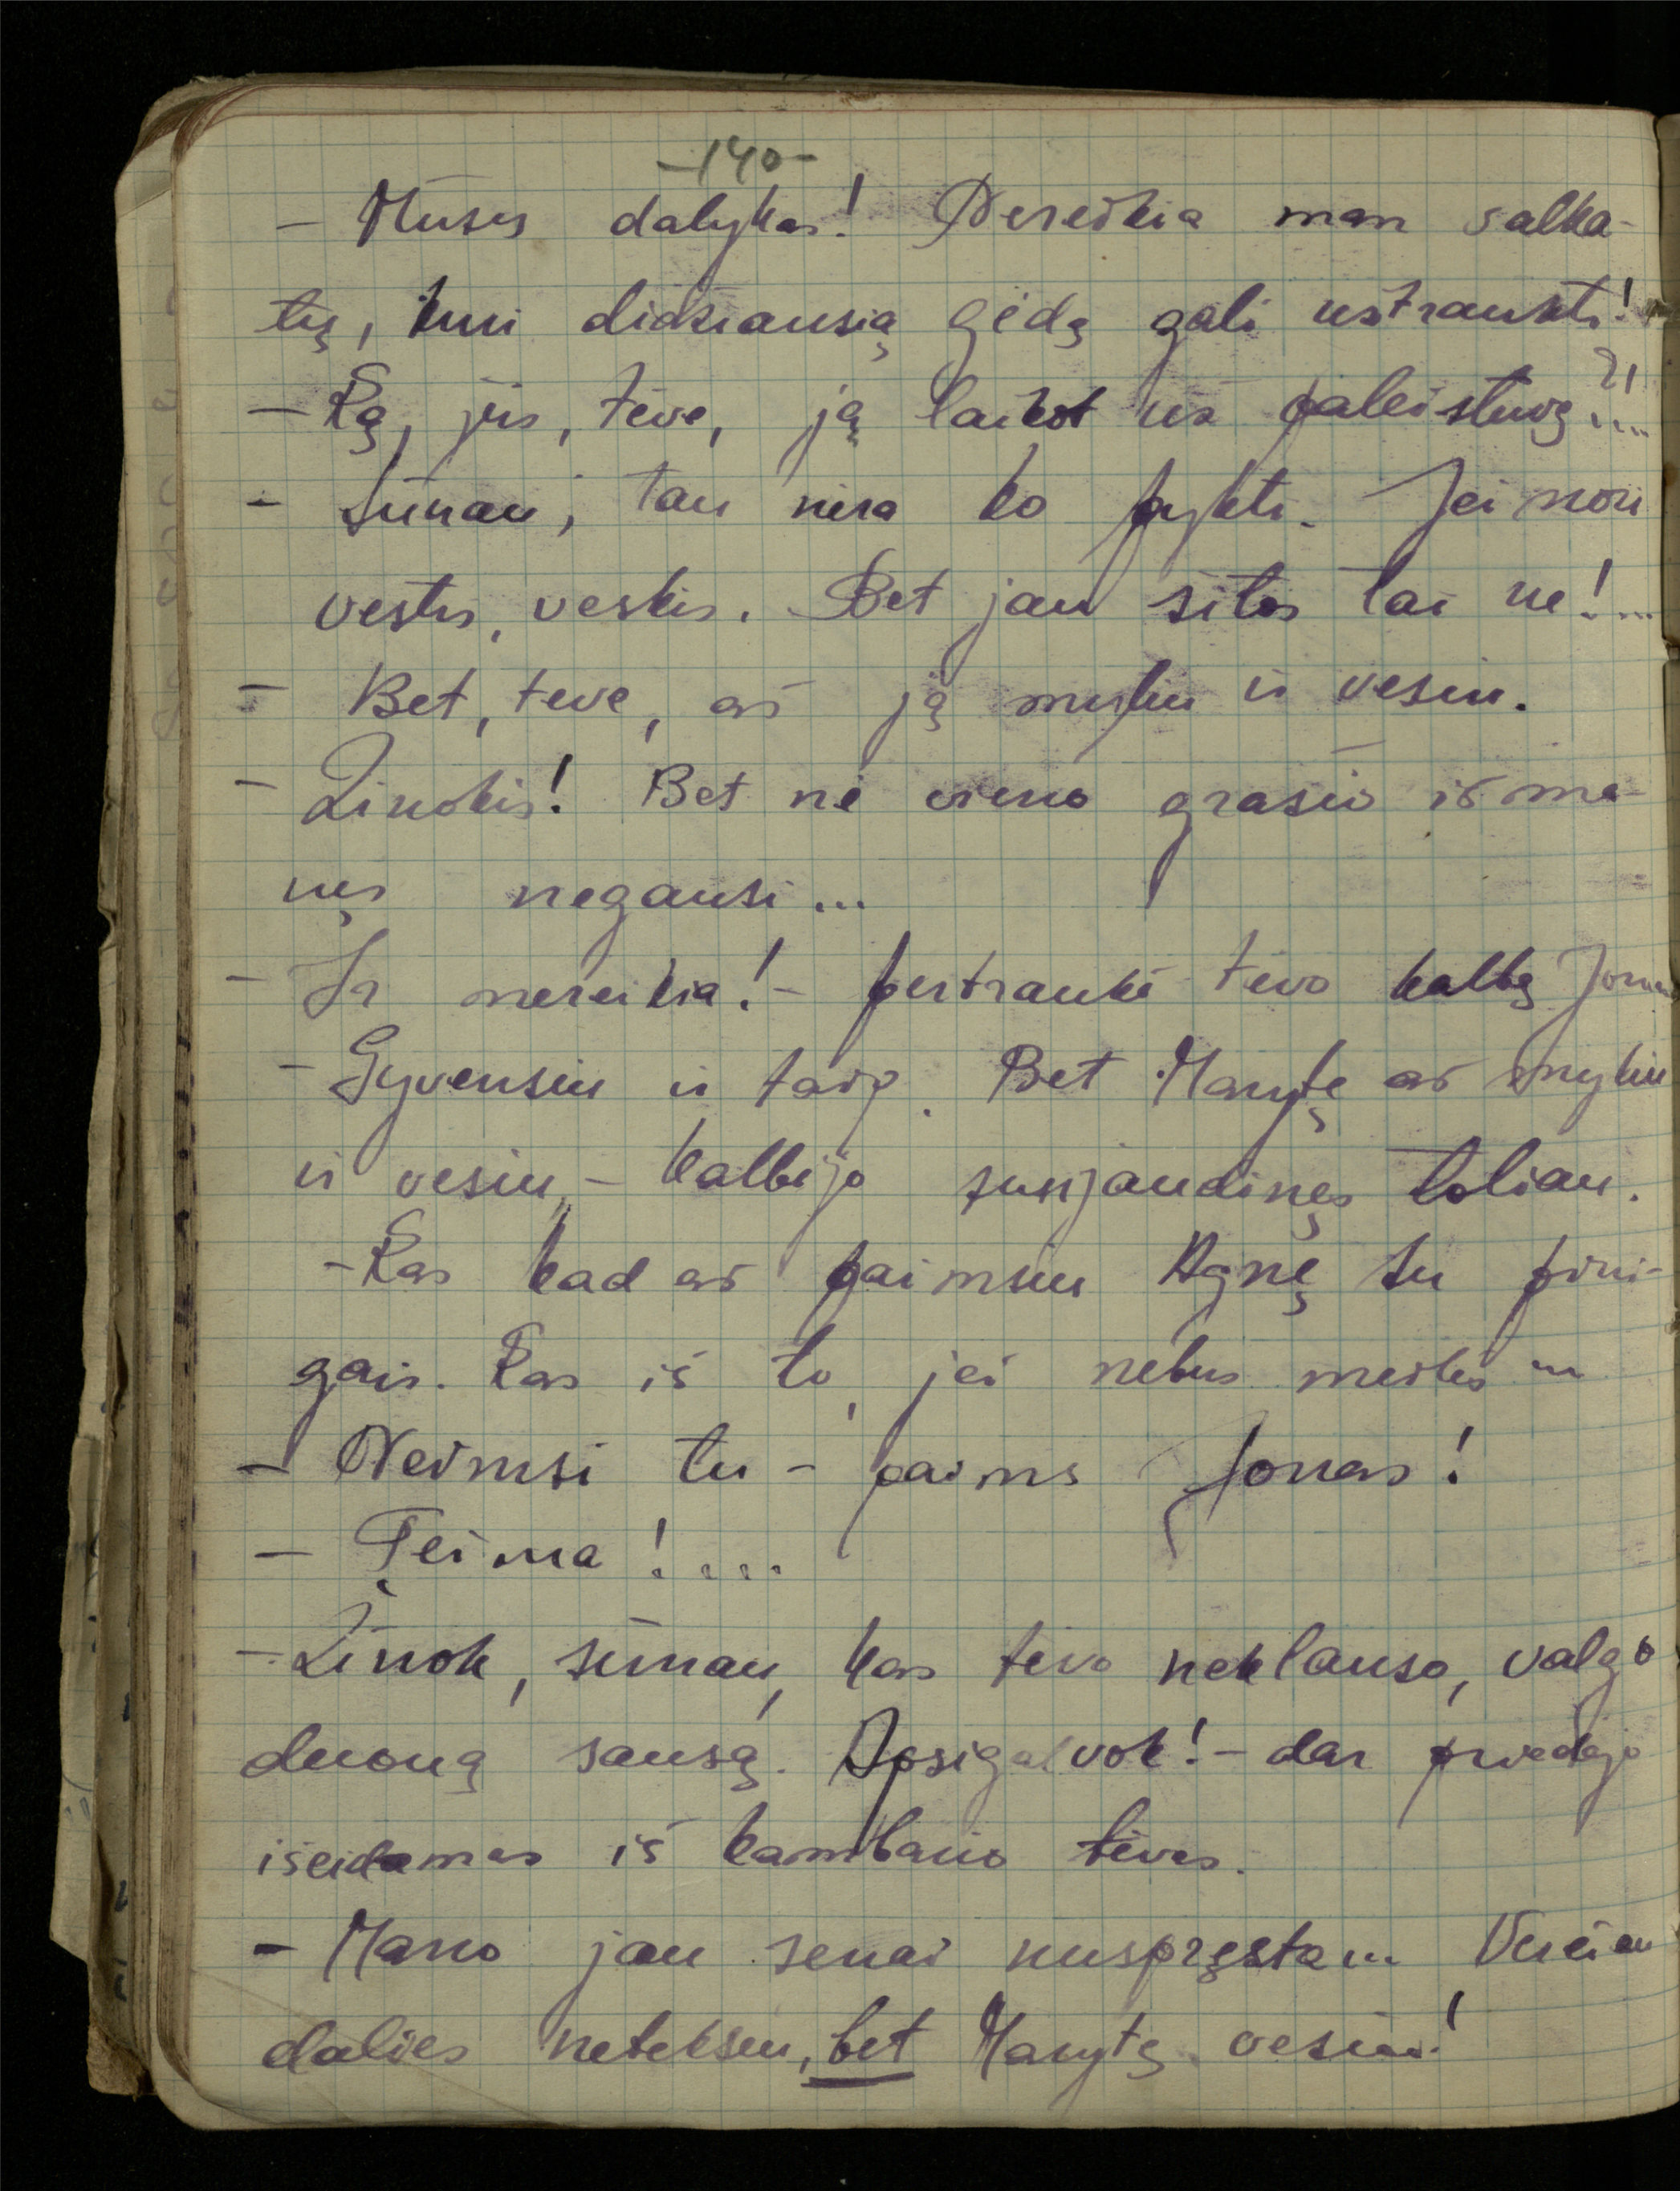 -140-
- Mūsų dalykas! Nereikia man valka-
tų, kuri didžiausią gėdą gali užtraukti!
- Ką, jūs, tėve, ją laikot už paleistuvę?!...
- Sūnau, tau nėra ko pykti. Jei nori
vesti, veskis. Bet jau šitos tai ne!...
- Bet, tėve, aš ją myliu ir vesiu.
- Žinokis! Bet nė vieno grašio iš ma-
nęs negausi...
- Ir nereikia! - pertraukė tėvo kalbą Jonas
- Gyvensiu ir taip. Bet Marytę aš myliu
ir vesiu, - kalbėjo susijaudinęs toliau.
- Kas kad aš paimsiu Agnę su pini-
gais. Kas iš to, jei nebus meilės...
- Neimsi tu - paims Jonas!
- Teima!....
- Žinok, sūnau, kas tėvo neklauso, valgo
duoną sausą. Apsigalvok! - dar pridėjo
išeidamas iš kambario tėvas.
- Mano jau senai nuspręsta... Verčiau
dalies neteksiu, bet Marytę vesiu!